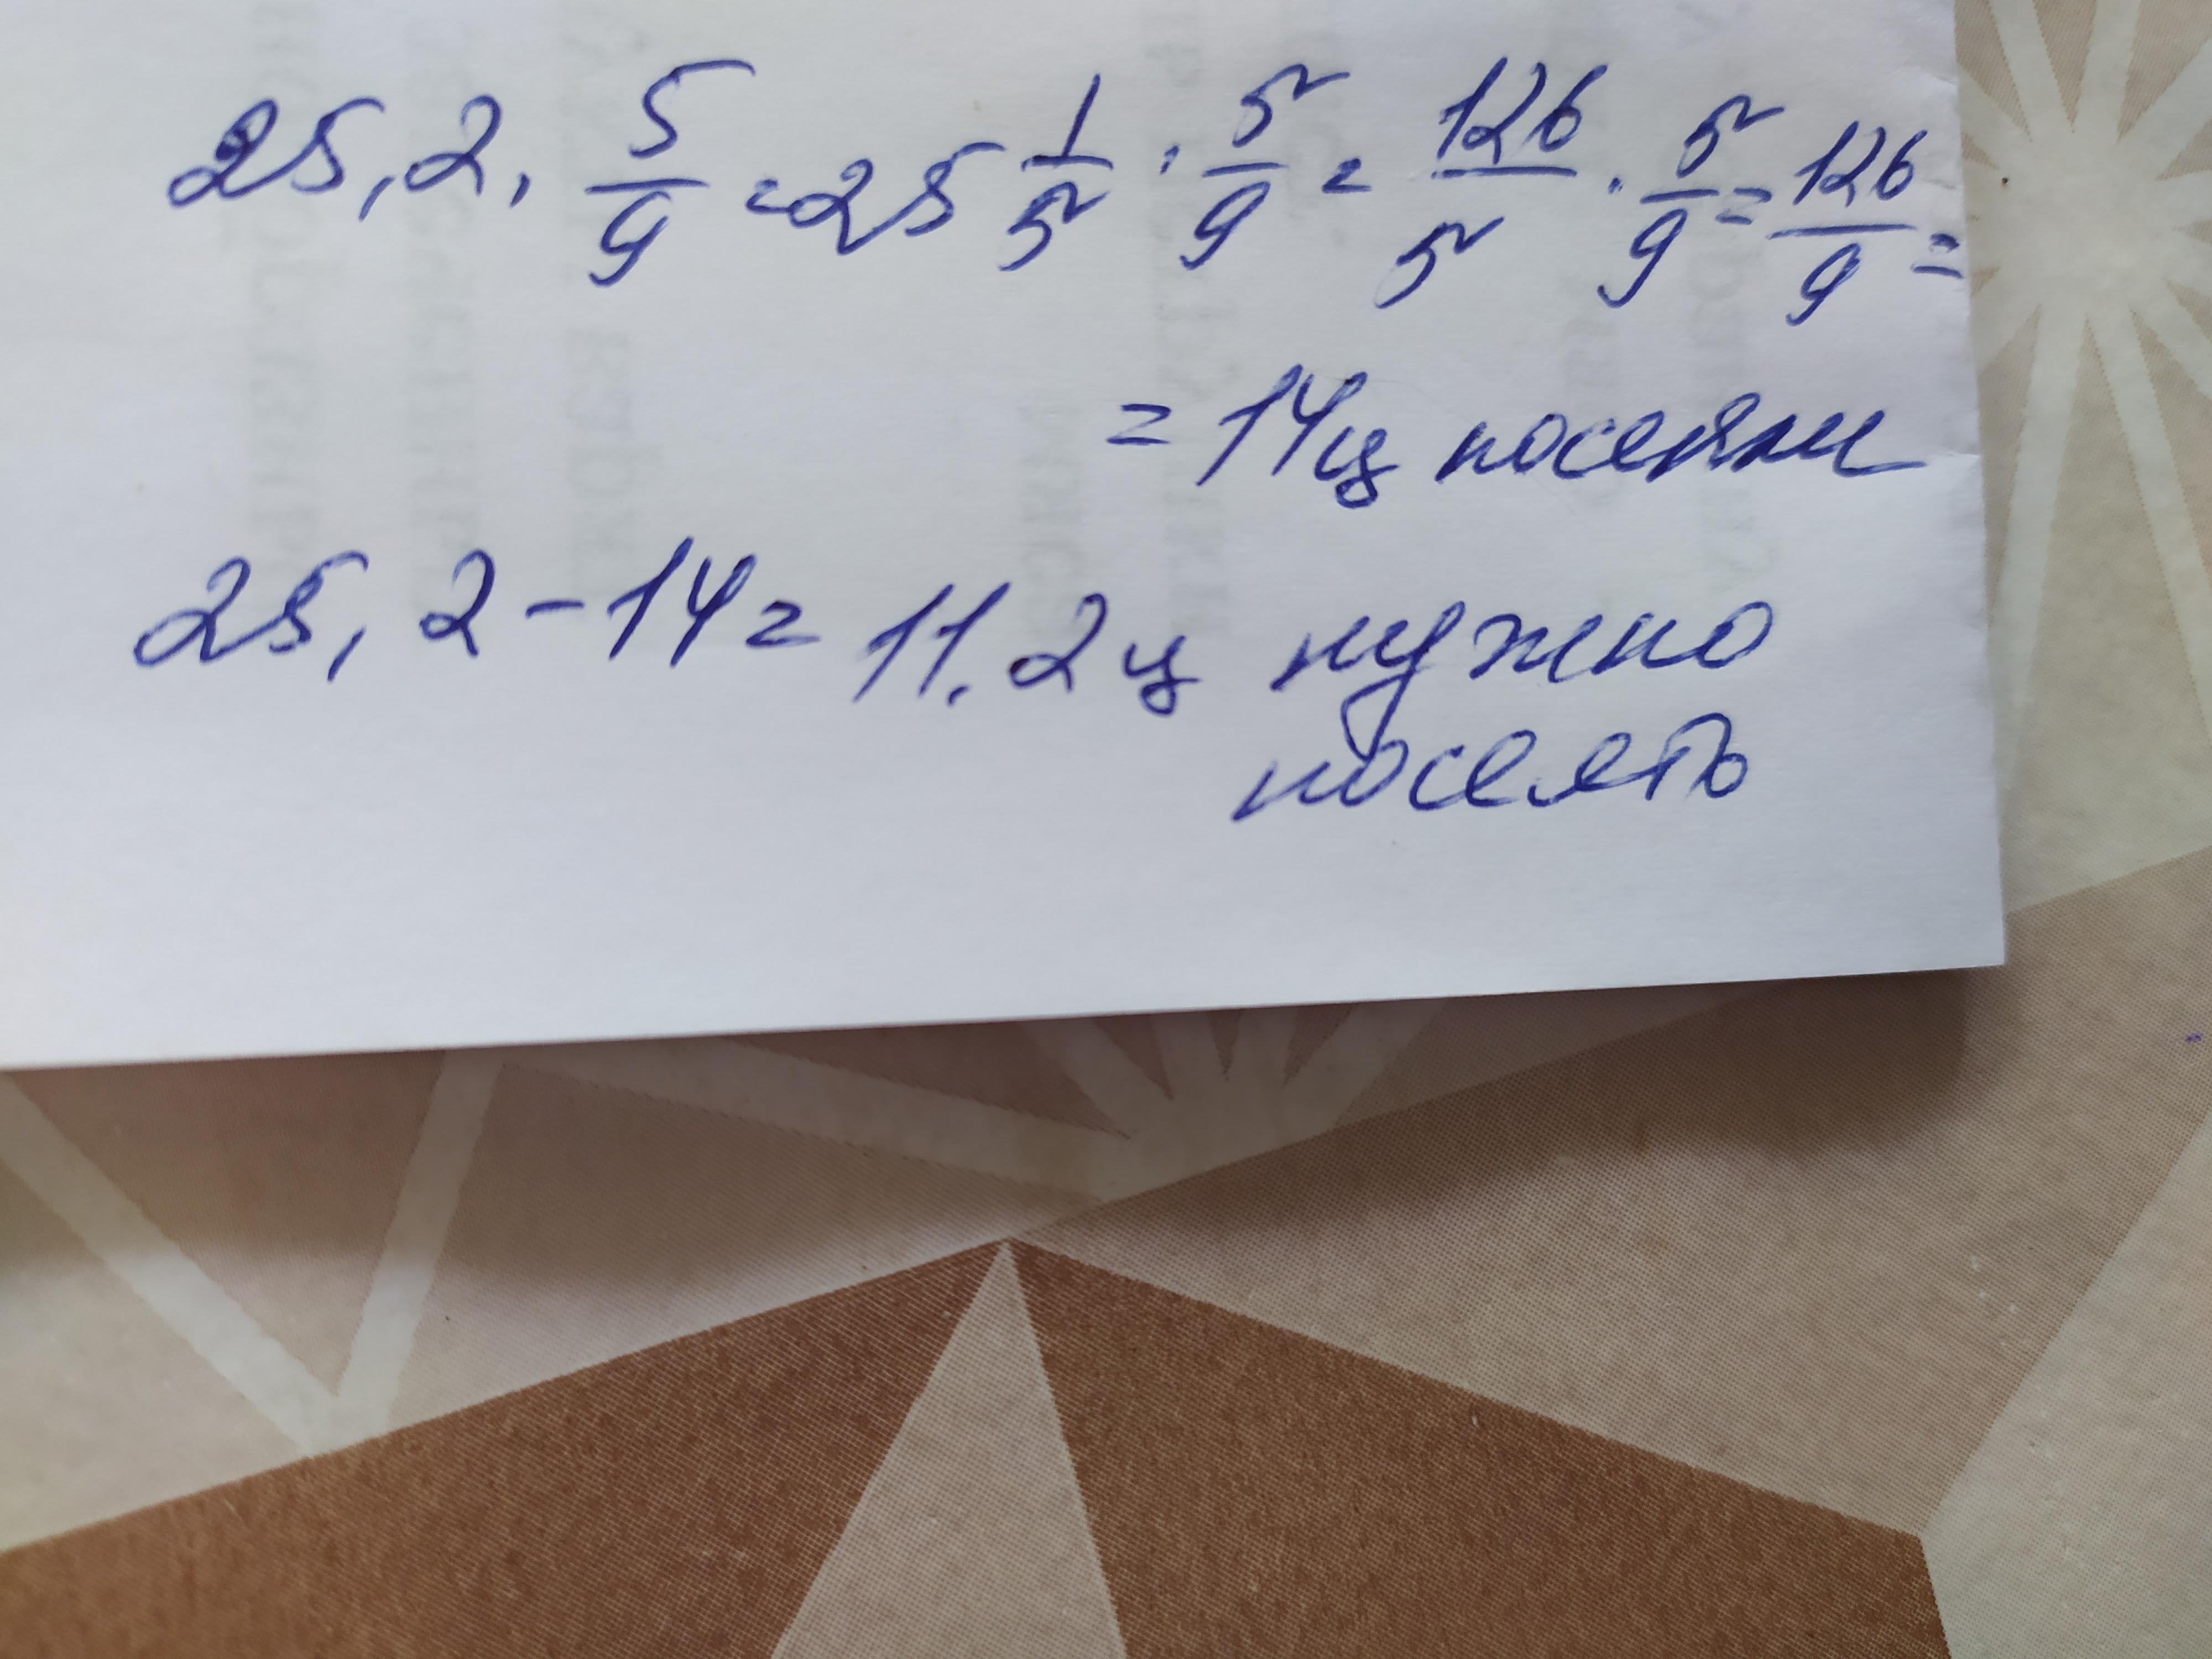 25,2 · 5/9 = 25 1/5 · 5/9 = 126/5 · 5/9 = 126/9 =
= 14ц посеяли
25,2 - 14 = 11.2 ц нужно
посеять